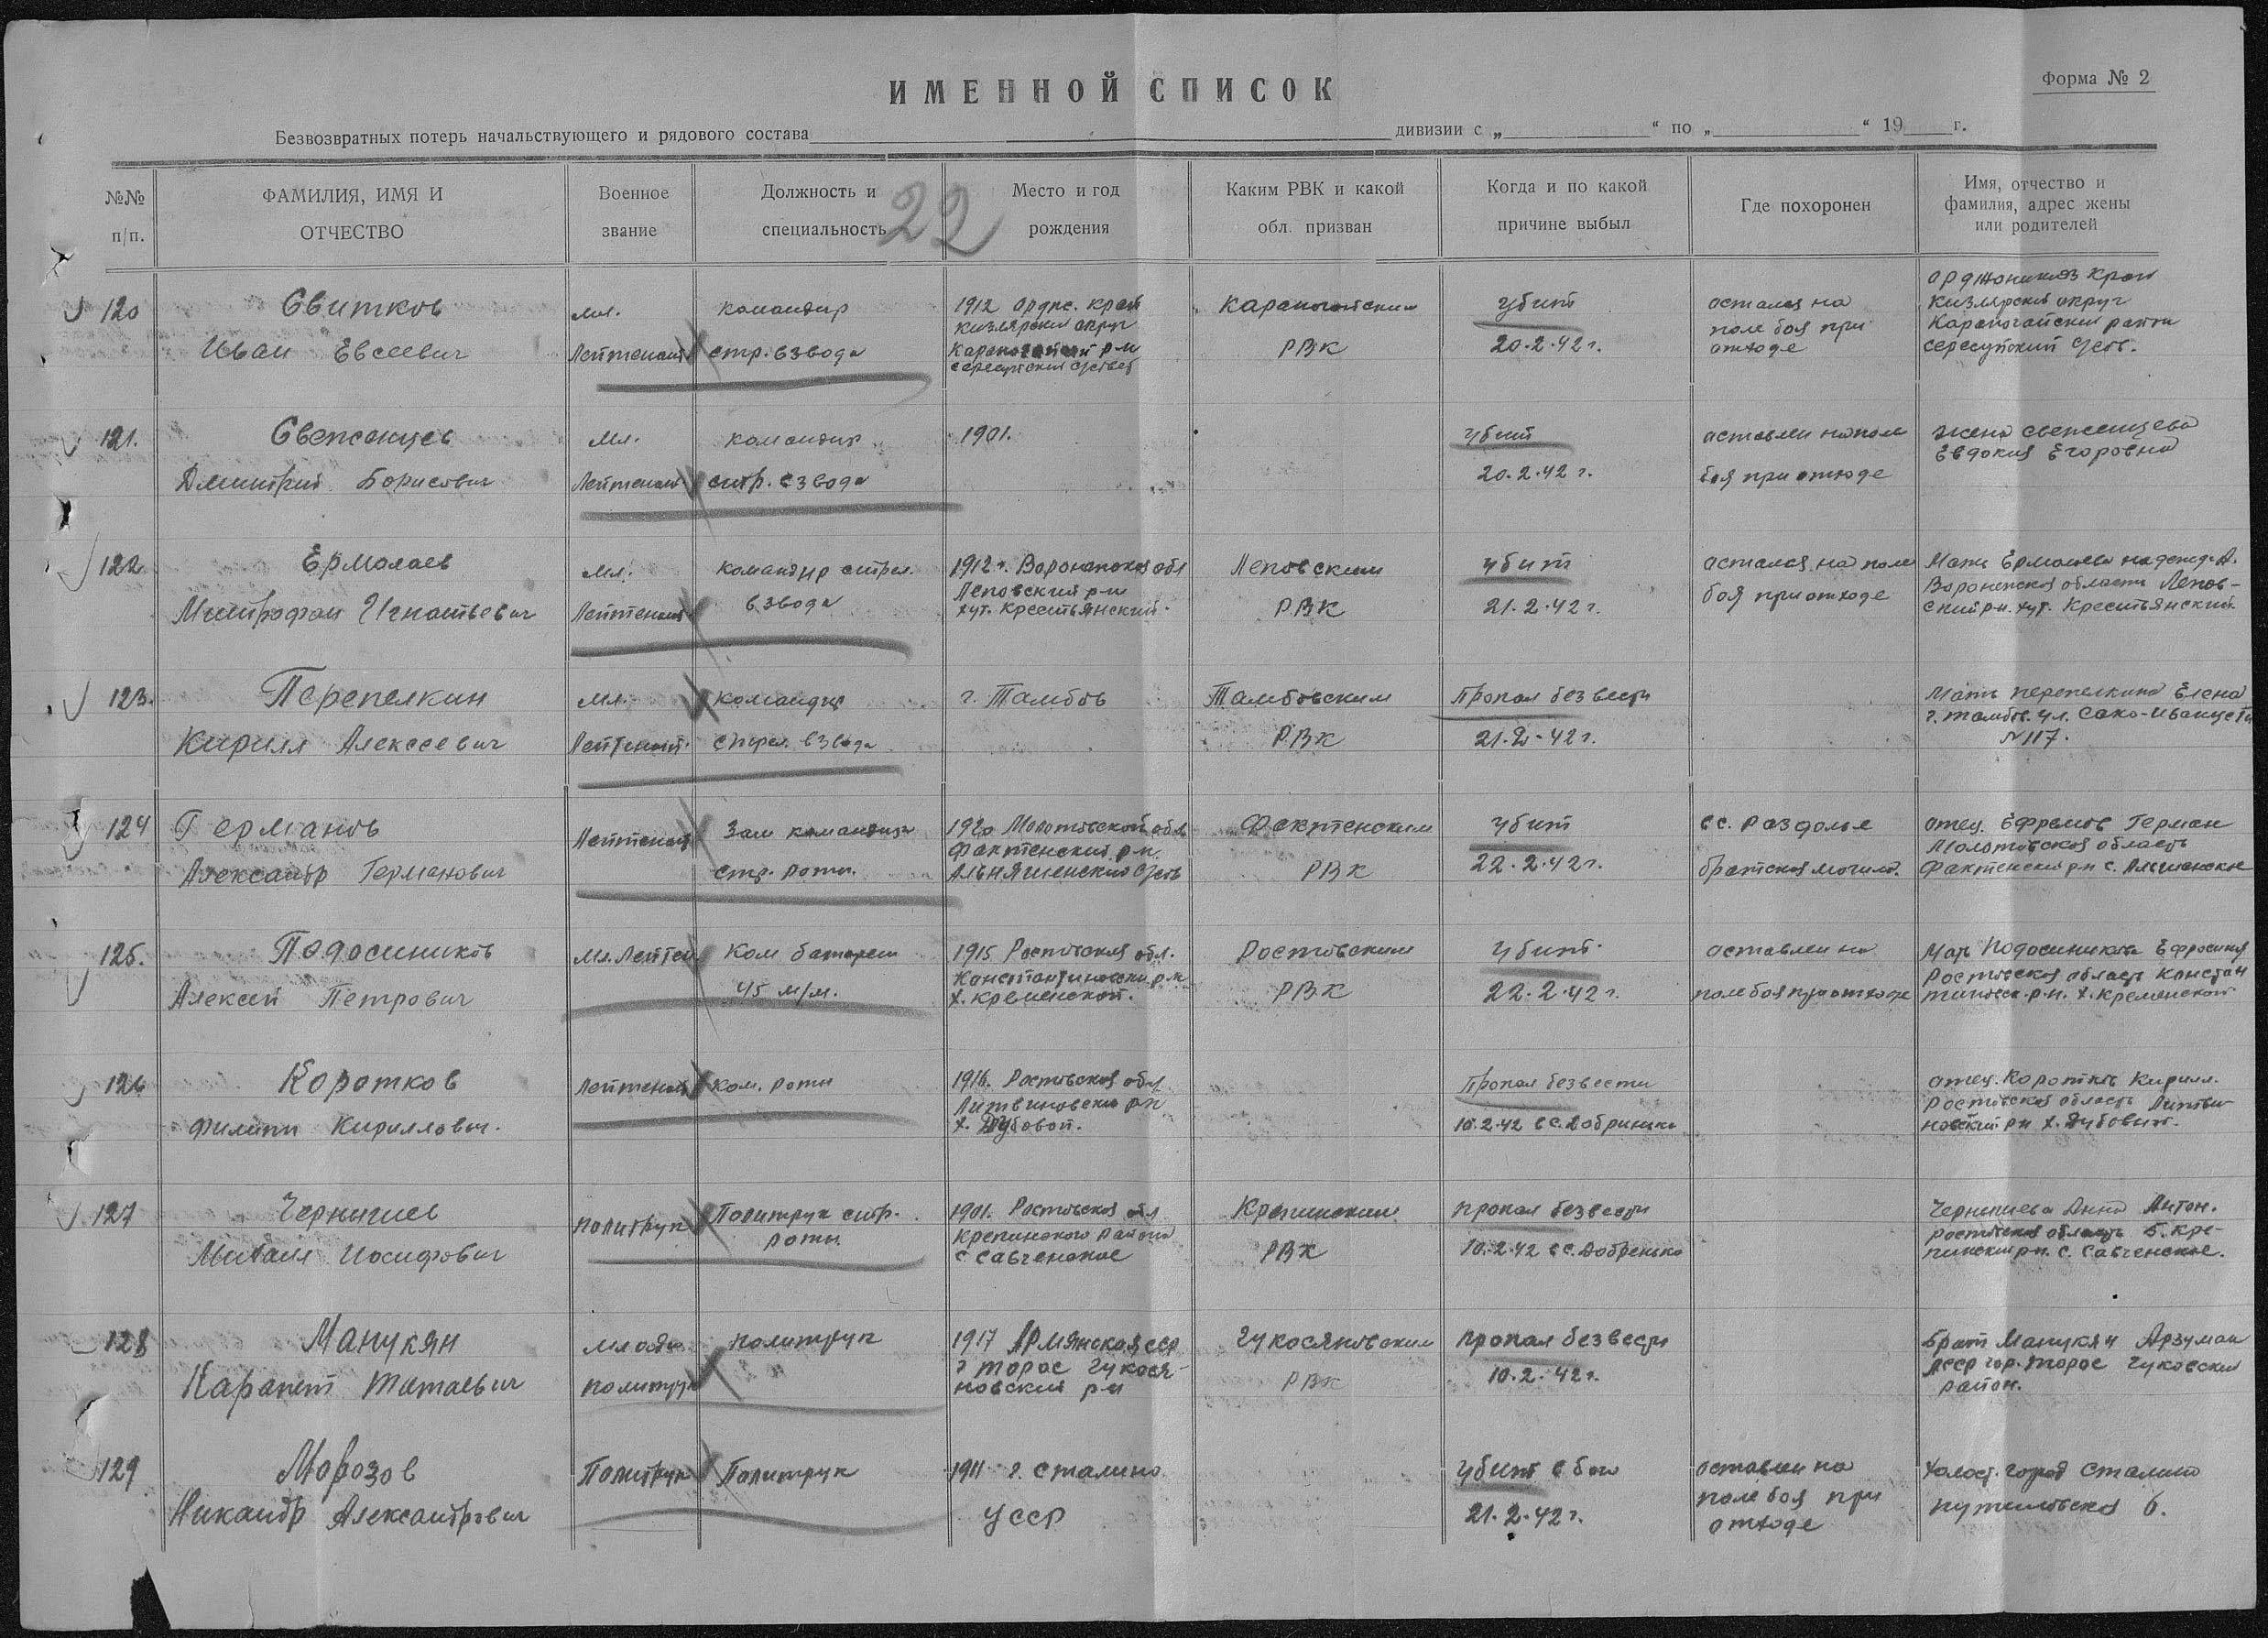 Форма № 2
ИМЕННОЙ СПИСОК
Безвозвратных потерь начальствующего и рядового состава дивизии с „ “ по „ “ 19 г.
№№ п/п.
ФАМИЛИЯ, ИМЯ И ОТЧЕСТВО
Военное звание
Должность и специальность
22
Место и год рождения
Каким РВК и какой обл. призван
Когда и по какой причине выбыл
Где похоронен
Имя, отчество и фамилия, адрес жены или родителей
120
Свитков
Иван Евсеевич
мл.
Лейтенант
командир
стр. взвода
1912 Орджс. край
Кизлярский округ
Караногайский р-н
РВК
убит
20.2.42 г.
остался на
поле боя при
отходе
Орджоникидз край
Кизлярский округ
Караногайский район
121.
Свеженцев
Дмитрий Борисович
Мл.
Лейтенант
командир
стр. взвода
1901.
убит
20.2.42 г.
оставлен на поле
боя при отходе
жена Свеженцева
Евдокия Егоровна
122
Ермолаев
Митрофан Игнатьевич
Мл.
Лейтенант
командир стрел.
взвода
1912 г. Воронежская обл
Леповский р-н
хут. Крестьянский.
Леповским
РВК
убит
21.2.42 г.
остался на поле
боя при отходе
Мать Ермолаева Надежда А.
Воронежская область Лепов-
ский р-н. хут. Крестьянский
123.
Перепелкин
Кирилл Алексеевич
мл.
Лейтенант.
командир
стрел. взвода
г. Тамбов
Тамбовским
РВК
Пропал без вести
21.2.42 г.
Мать Перепелкина Елена
г. Тамбов. ул. Сако-Иванцети
№117.
124
Германов
Александр Германович
Лейтенант
Зам командира
стр. роты.
1920 Молотовской обл
Фактенский р-н.
Фактенским
РВК
убит
22.2.42 г.
в с. Раздолье
братская могила.
отец. Ефремов Герман
Молотовская область
125.
Подосинников
Алексей Петрович
Мл. Лейтен
Ком батареи
45 м/м.
1915 Ростовская обл.
Константиновский р-н
х. Кременской.
Ростовским
РВК
убит.
22.2.42 г.
оставлен на
поле боя при отходе
Мать Подосинникова Ефросиния
Ростовская область Констан
тиновск. р-н. х. Кременской
126
Коротков
Филипп Кириллович.
Лейтенант
Ком. роты
1916. Ростовская обл
Литвиновский р-н
х. Дубовой.
Пропал без вести
10.2.42 в с.
отец. Коротков Кирилл.
Ростовская область Литви
новский р-н х.
127
Михаил Иосифович
Политрук
Политрук стр.
роты.
1901. Ростовская обл
Крепинского района
с Савченское
Крепинским
РВК
пропал без вести
10.2.42 в с.
Анна Антон.
Ростовская область Б. Кре-
пинский р-н. с. Савченское.
128
Манукян
Карапет Татаевич
младш
политрук
политрук
1917 Армянская ССР
г Торос Гукося-
новский р-н
Гукосяновским
РВК
пропал без вести
10.2.42 г.
Брат Манукян Арзуман
АССР гор. Торос Гукосский
район.
129
Морозов
Никандр Александрович
Политрук
Политрук
1911 г. Сталино
УССР
убит в бою
21.2.42 г.
оставлен на
поле боя при
отходе
Холост. город Сталино
Путиловская 6.